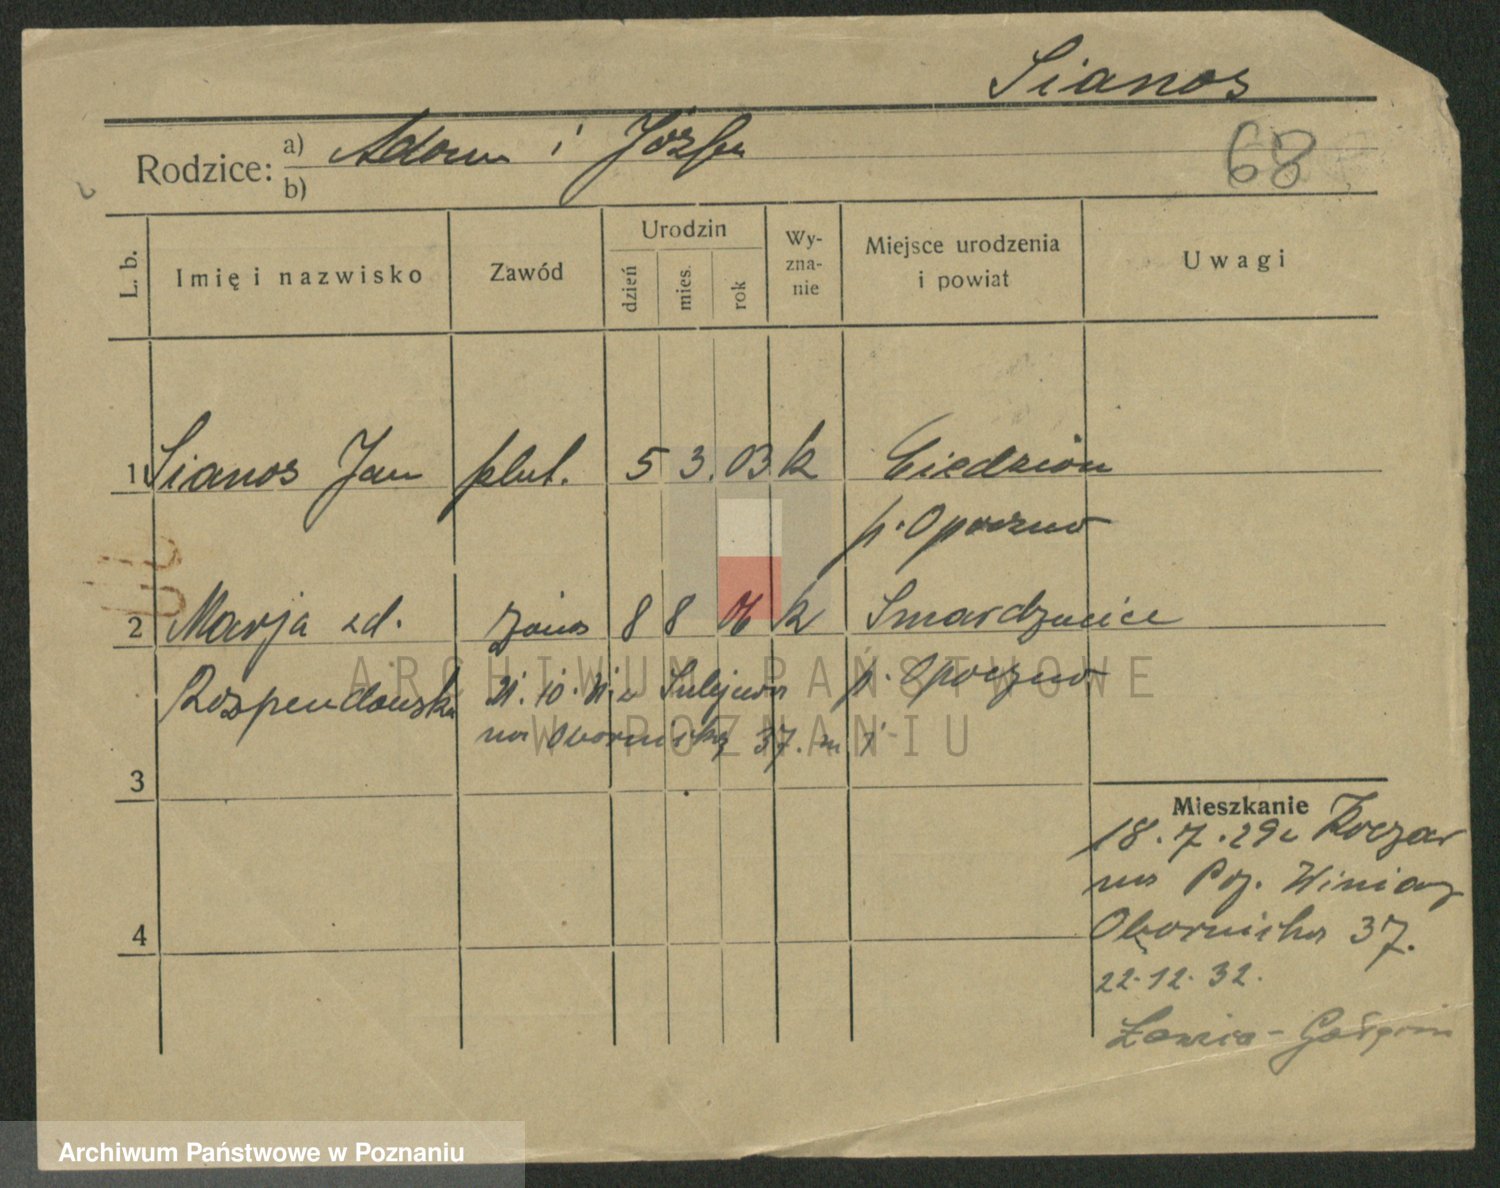 Sianos
Rodzice: a) Adam i Józefa
b)
68
L. b.
Imię i nazwisko
Zawód
Urodzin
dzień
mies.
rok
Wy-
zna-
nie
Miejsce urodzenia
i powiat
Uwagi
1 Sianos Jan plut. 5 3. 03 k
p. Opoczno
2 Marja zd. żona 8 8 06 k Smardzewice
Rozpendowska 21. 10. 31 z Sulejowa p. Opoczno
na Obornicką 37. m. 1
3
Mieszkanie
18. 7. 29 z
na Poz. Winiary
Obornicka 37.
4
22. 12. 32.
Ławica -
ARCHIWUM PAŃSTWOWE
W POZNANIU
Archiwum Państwowe w Poznaniu